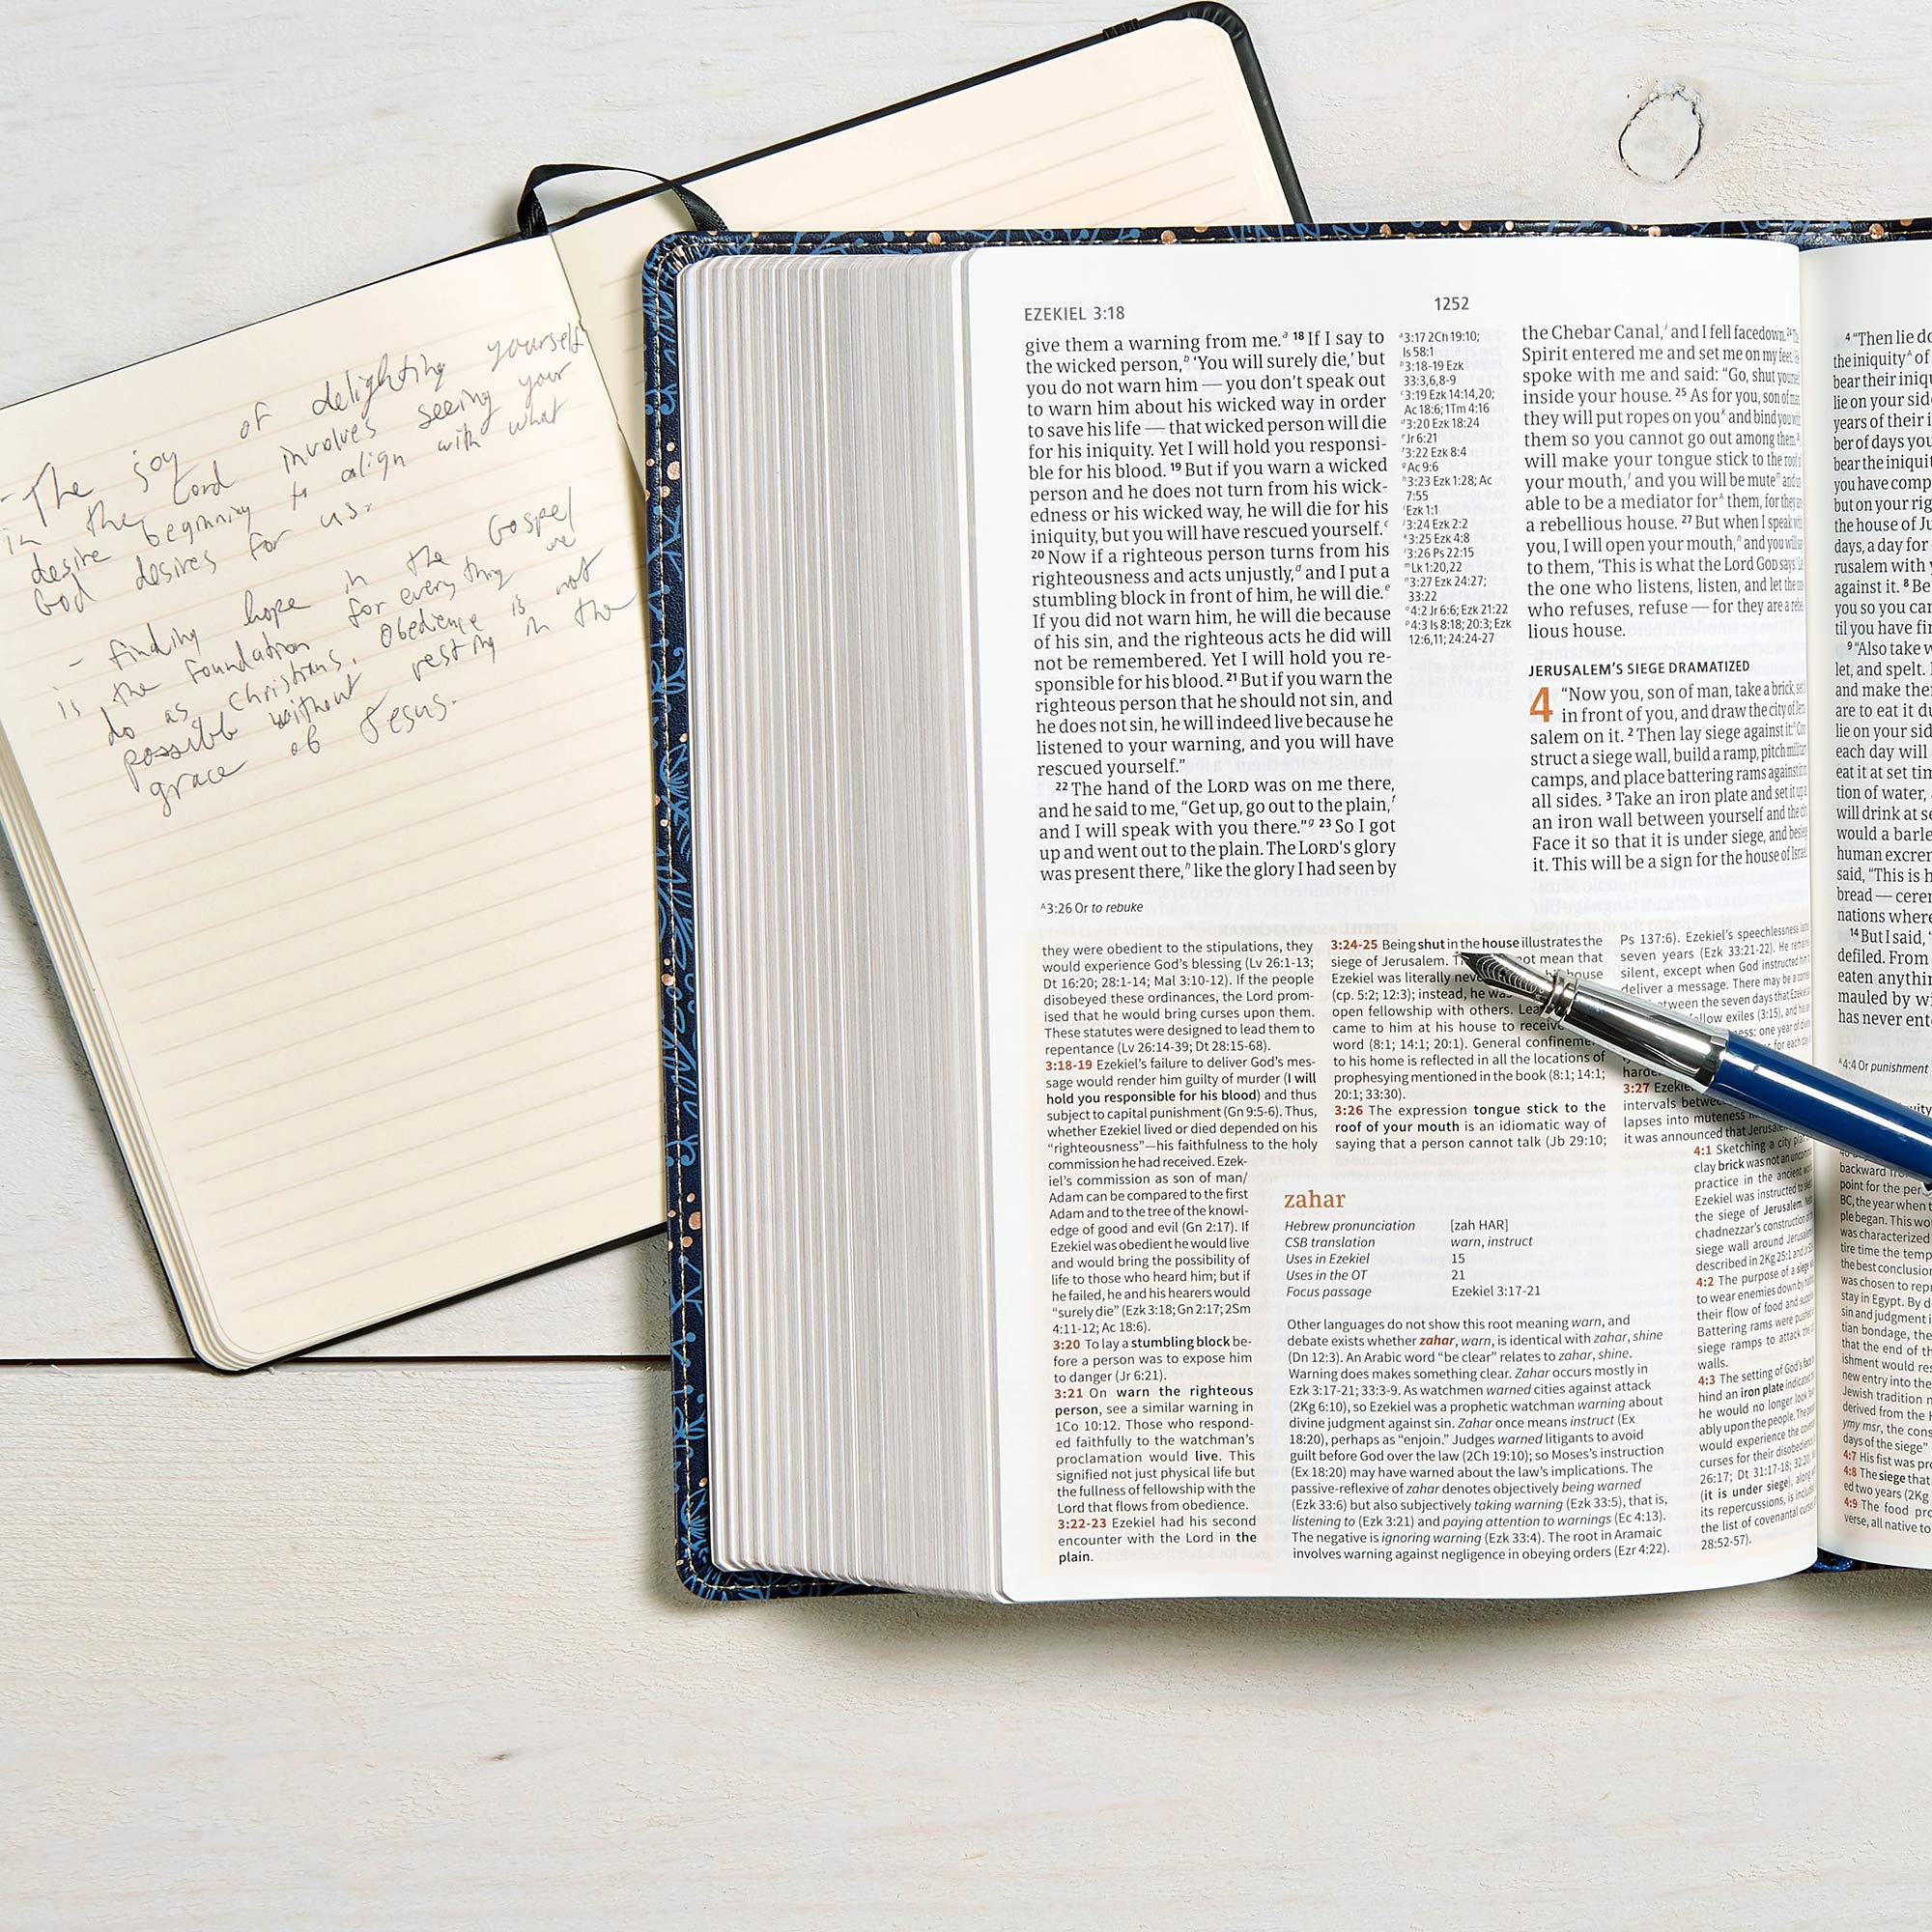 - The joy of delighting yourself
in the Lord involves seeing your
desire beginning to align with what
God desires for us.
- finding hope in the Gospel
is the foundation for everything we
do as Christians. Obedience is not
possible without resting in the
grace of Jesus.
EZEKIEL 3:18
1252
give them a warning from me.ᵃ 18 If I say to
the wicked person,ᵇ ‘You will surely die,’ but
you do not warn him — you don’t speak out
to warn him about his wicked way in order
to save his life — that wicked person will die
for his iniquity. Yet I will hold you responsi-
ble for his blood. 19 But if you warn a wicked
person and he does not turn from his wick-
edness or his wicked way, he will die for his
iniquity, but you will have rescued yourself.ᶜ
20 Now if a righteous person turns from his
righteousness and acts unjustly,ᵈ and I put a
stumbling block in front of him, he will die.ᵉ
If you did not warn him, he will die because
of his sin, and the righteous acts he did will
not be remembered. Yet I will hold you re-
sponsible for his blood. 21 But if you warn the
righteous person that he should not sin, and
he does not sin, he will indeed live because he
listened to your warning, and you will have
rescued yourself.”
22 The hand of the LORD was on me there,
and he said to me, “Get up, go out to the plain,ᶠ
and I will speak with you there.”ᵍ 23 So I got
up and went out to the plain. The LORD’s glory
was present there,ʰ like the glory I had seen by
ᴬ3:26 Or to rebuke
ᵃ3:17 2Ch 19:10;
Is 58:1
ᵇ3:18-19 Ezk
33:3,6,8-9
ᶜ3:19 Ezk 14:14,20;
Ac 18:6; 1Tm 4:16
ᵈ3:20 Ezk 18:24
ᵉJr 6:21
ᶠ3:22 Ezk 8:4
ᵍAc 9:6
ʰ3:23 Ezk 1:28; Ac
7:55
ⁱEzk 1:1
ʲ3:24 Ezk 2:2
ᵏ3:25 Ezk 4:8
ˡ3:26 Ps 22:15
ᵐLk 1:20,22
ⁿ3:27 Ezk 24:27;
33:22
ᵒ4:2 Jr 6:6; Ezk 21:22
ᵖ4:3 Is 8:18; 20:3; Ezk
12:6,11; 24:24-27
the Chebar Canal,ⁱ and I fell facedown. 24
Spirit entered me and set me on my feet.
spoke with me and said: “Go, shut yourself
inside your house. 25 As for you, son of man,
they will put ropes on youᵏ and bind you with
them so you cannot go out among them.
will make your tongue stick to the roof of
your mouth,ˡ and you will be muteᵐ and
able to be a mediator forᴬ them, for they are
a rebellious house. 27 But when I speak with
you, I will open your mouth,ⁿ and you will say
to them, ‘This is what the Lord GOD says:’
the one who listens, listen, and let the one
who refuses, refuse — for they are a rebel-
lious house.
JERUSALEM’S SIEGE DRAMATIZED
4 “Now you, son of man, take a brick, set
in front of you, and draw the city of Jeru-
salem on it. 2 Then lay siege against it:ᵒ Con-
struct a siege wall, build a ramp, pitch military
camps, and place battering rams against it on
all sides. 3 Take an iron plate and set it up
an iron wall between yourself and the city.
Face it so that it is under siege, and besiege
it. This will be a sign for the house of Israel.
they were obedient to the stipulations, they
would experience God’s blessing (Lv 26:1-13;
Dt 16:20; 28:1-14; Mal 3:10-12). If the people
disobeyed these ordinances, the Lord prom-
ised that he would bring curses upon them.
These statutes were designed to lead them to
repentance (Lv 26:14-39; Dt 28:15-68).
3:18-19 Ezekiel’s failure to deliver God’s mes-
sage would render him guilty of murder (I will
hold you responsible for his blood) and thus
subject to capital punishment (Gn 9:5-6). Thus,
whether Ezekiel lived or died depended on his
“righteousness”—his faithfulness to the holy
commission he had received. Ezek-
iel’s commission as son of man/
Adam can be compared to the first
Adam and to the tree of the knowl-
edge of good and evil (Gn 2:17). If
Ezekiel was obedient he would live
and would bring the possibility of
life to those who heard him; but if
he failed, he and his hearers would
“surely die” (Ezk 3:18; Gn 2:17; 2Sm
4:11-12; Ac 18:6).
3:20 To lay a stumbling block be-
fore a person was to expose him
to danger (Jr 6:21).
3:21 On warn the righteous
person, see a similar warning in
1Co 10:12. Those who respond-
ed faithfully to the watchman’s
proclamation would live. This
signified not just physical life but
the fullness of fellowship with the
Lord that flows from obedience.
3:22-23 Ezekiel had his second
encounter with the Lord in the
plain.
3:24-25 Being shut in the house illustrates the
siege of Jerusalem. not mean that
Ezekiel was literally house
(cp. 5:2; 12:3); instead, he was
open fellowship with others.
came to him at his house to receive
word (8:1; 14:1; 20:1). General confinement
to his home is reflected in all the locations of
prophesying mentioned in the book (8:1; 14:1;
20:1; 33:30).
3:26 The expression tongue stick to the
roof of your mouth is an idiomatic way of
saying that a person cannot talk (Jb 29:10;
Ps 137:6). Ezekiel’s speechlessness
seven years (Ezk 33:21-22). He remained
silent, except when God instructed him
deliver a message. There may be a
between the seven days that Ezekiel
fellow exiles (3:15), and his
one year of
for each day
3:27
intervals
lapses into muteness
it was announced that Jerusalem
zahar
Hebrew pronunciation [zah HAR]
CSB translation warn, instruct
Uses in Ezekiel 15
Uses in the OT 21
Focus passage Ezekiel 3:17-21
Other languages do not show this root meaning warn, and
debate exists whether zahar, warn, is identical with zahar, shine
(Dn 12:3). An Arabic word “be clear” relates to zahar, shine.
Warning does makes something clear. Zahar occurs mostly in
Ezk 3:17-21; 33:3-9. As watchmen warned cities against attack
(2Kg 6:10), so Ezekiel was a prophetic watchman warning about
divine judgment against sin. Zahar once means instruct (Ex
18:20), perhaps as “enjoin.” Judges warned litigants to avoid
guilt before God over the law (2Ch 19:10); so Moses’s instruction
(Ex 18:20) may have warned about the law’s implications. The
passive-reflexive of zahar denotes objectively being warned
(Ezk 33:6) but also subjectively taking warning (Ezk 33:5), that is,
listening to (Ezk 3:21) and paying attention to warnings (Ec 4:13).
The negative is ignoring warning (Ezk 33:4). The root in Aramaic
involves warning against negligence in obeying orders (Ezr 4:22).
4:1 Sketching a city
clay brick was not an uncommon
practice in the ancient
Ezekiel was instructed to
the siege of Jerusalem.
chadnezzar’s construction of
siege wall around Jerusalem
described in 2Kg 25:1 and
4:2 The purpose of a siege
to wear enemies down by
their flow of food and
Battering rams were pushed
siege ramps to attack the
walls.
4:3 The setting of God’s face
hind an iron plate indicated
he would no longer look
ably upon the people. The
would experience the
curses for their disobedience
26:17; Dt 31:17-18; 32:20
(it is under siege), along
its repercussions, is included
the list of covenantal curses
28:52-57).
4 “Then lie
the iniquityᴬ of
bear their
lie on your
years of their
ber of days you
bear the
you have
but on your
the house of
days, a day for
rusalem with
against it. 8
you so you
til you have
9 “Also take
let, and spelt.
and make
are to eat it
lie on your
each day will
eat it at set
tion of water,
will drink at
would a
human
said, “This is
bread —
nations where
14 But I said,
defiled. From
eaten
mauled by
has never
ᴬ4:4 Or punishment
backward
point for the
BC, the year when
ple began. This
was characterized
tire time the
the best
was chosen to
stay in Egypt. By
sin and judgment
tian bondage, the
that the end of
ishment would
new entry into the
Jewish tradition
derived from the
ymy msr, the
days of the siege”
4:7 His fist was
4:8 The siege that
ed two years (2Kg
4:9 The food
verse, all native to